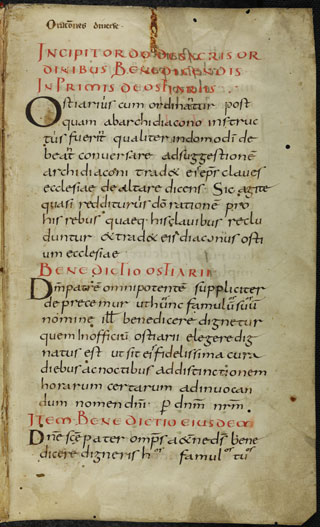 Orationes diverse
INCIPIT ORDO DE SACRIS OR
DINIBUS BENEDICENDIS
IN PRIMIS DE OSTIARIIS
Ostiarius cum ordinatur post
quam ab archidiacono instruc
tus fuerit qualiter in domo di de
beat conversare ad suggestionē
archidiaconi trad& ei eps claves
ecclesiae de altare dicens. Sic agite
quasi reddituri dō rationē pro
his rebus quaeq; his clavibus reclu
duntur & trad& eis diaconus osti
um ecclesiae
BENEDICTIO OSTIARII
Dm patrē omnipotentē suppliciter
deprecemur ut hunc famulū suū
nomine ill benedicere dignetur
quem in officiū ostiarii elegere dig
natus est ut sit ei fidelissima cura
diebus ac noctibus ad distinctionem
horarum certarum ad invocan
dum nomen dni. p dnm nrm.
ITEM BENEDICTIO EIUSDEM
Dne sce pater omps aetne ds bene
dicere digneris hos famulos tuos